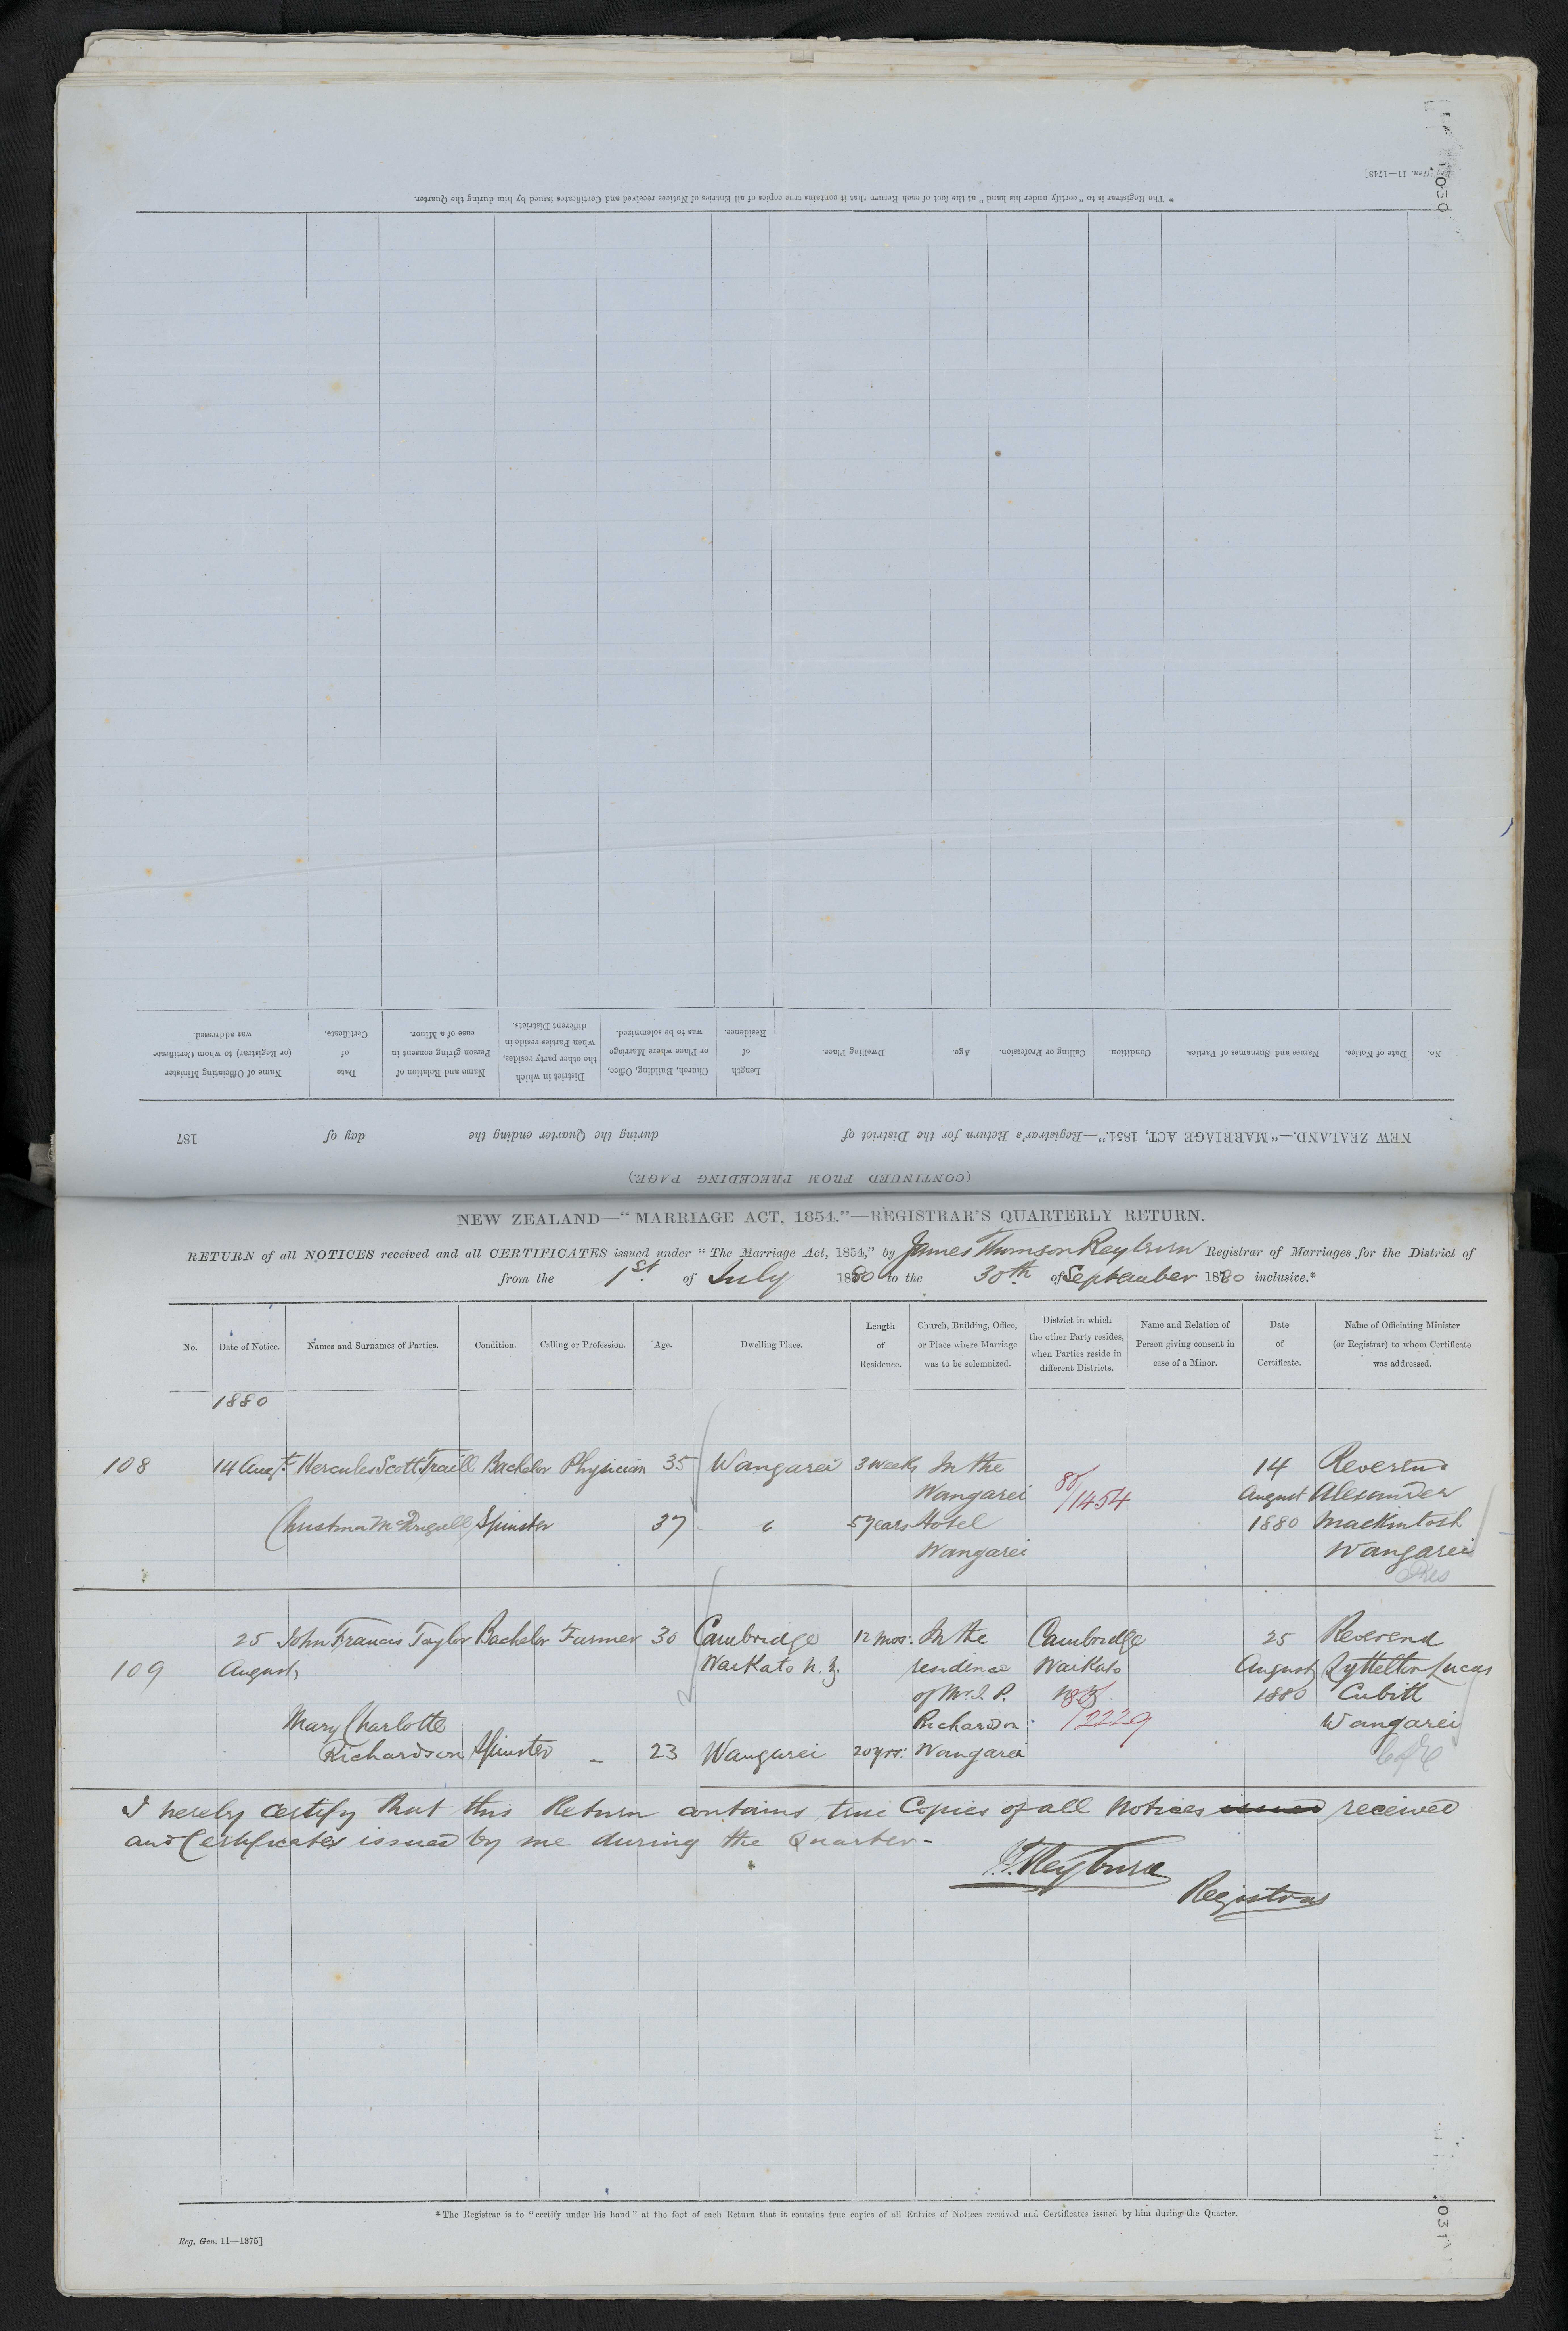 [Reg. Gen. 11—1743]
030
* The Registrar is to "certify under his hand" at the foot of each Return that it contains true copies of all Entries of Notices received and Certificates issued by him during the Quarter.
(CONTINUED FROM PRECEDING PAGE.)
NEW ZEALAND.—"MARRIAGE ACT, 1854."—Registrar's Return for the District of during the Quarter ending the day of 187
No. Date of Notice. Names and Surnames of Parties. Condition. Calling or Profession. Age. Dwelling Place. Length of Residence. Church, Building, Office, or Place where Marriage was to be solemnized. District in which the other party resides, when Parties reside in different Districts. Name and Relation of Person giving consent in case of a Minor. Date of Certificate. Name of Officiating Minister (or Registrar) to whom Certificate was addressed.
NEW ZEALAND—"MARRIAGE ACT, 1854."—REGISTRAR'S QUARTERLY RETURN.
RETURN of all NOTICES received and all CERTIFICATES issued under "The Marriage Act, 1854," by James Thomson Reyburn Registrar of Marriages for the District of
from the 1st of July 1880 to the 30th of September 1880 inclusive.*
No. Date of Notice. Names and Surnames of Parties. Condition. Calling or Profession. Age. Dwelling Place. Length of Residence. Church, Building, Office, or Place where Marriage was to be solemnized. District in which the other Party resides, when Parties reside in different Districts. Name and Relation of Person giving consent in case of a Minor. Date of Certificate. Name of Officiating Minister (or Registrar) to whom Certificate was addressed.
1880
108 14 Augt. Hercules Scott Traill Bachelor Physician 35 Wangarei 3 weeks In the 14 Reverend
Wangarei 80/1454 August Alexander
Christina McDougall Spinster 37 " 5 years Hotel 1880 Mackintosh
Wangarei Wangarei
Pres
25 John Francis Taylor Bachelor Farmer 30 Cambridge 12 mos. In the Cambridge 25 Reverend
109 August Waikato N.Z. residence Waikato August Lyttelton Lucas
of Mr. J. P. N.Z. 1880 Cubitt
Mary Charlotte Richardson 80/2229 Wangarei
Richardson Spinster – 23 Wangarei 20 yrs. Wangarei C of E
I hereby certify that this Return contains true Copies of all Notices issued received
and Certificates issued by me during the Quarter-
J.T. Reyburn
Registrar
* The Registrar is to "certify under his hand" at the foot of each Return that it contains true copies of all Entries of Notices received and Certificates issued by him during the Quarter.
Reg. Gen. 11—1375]
031